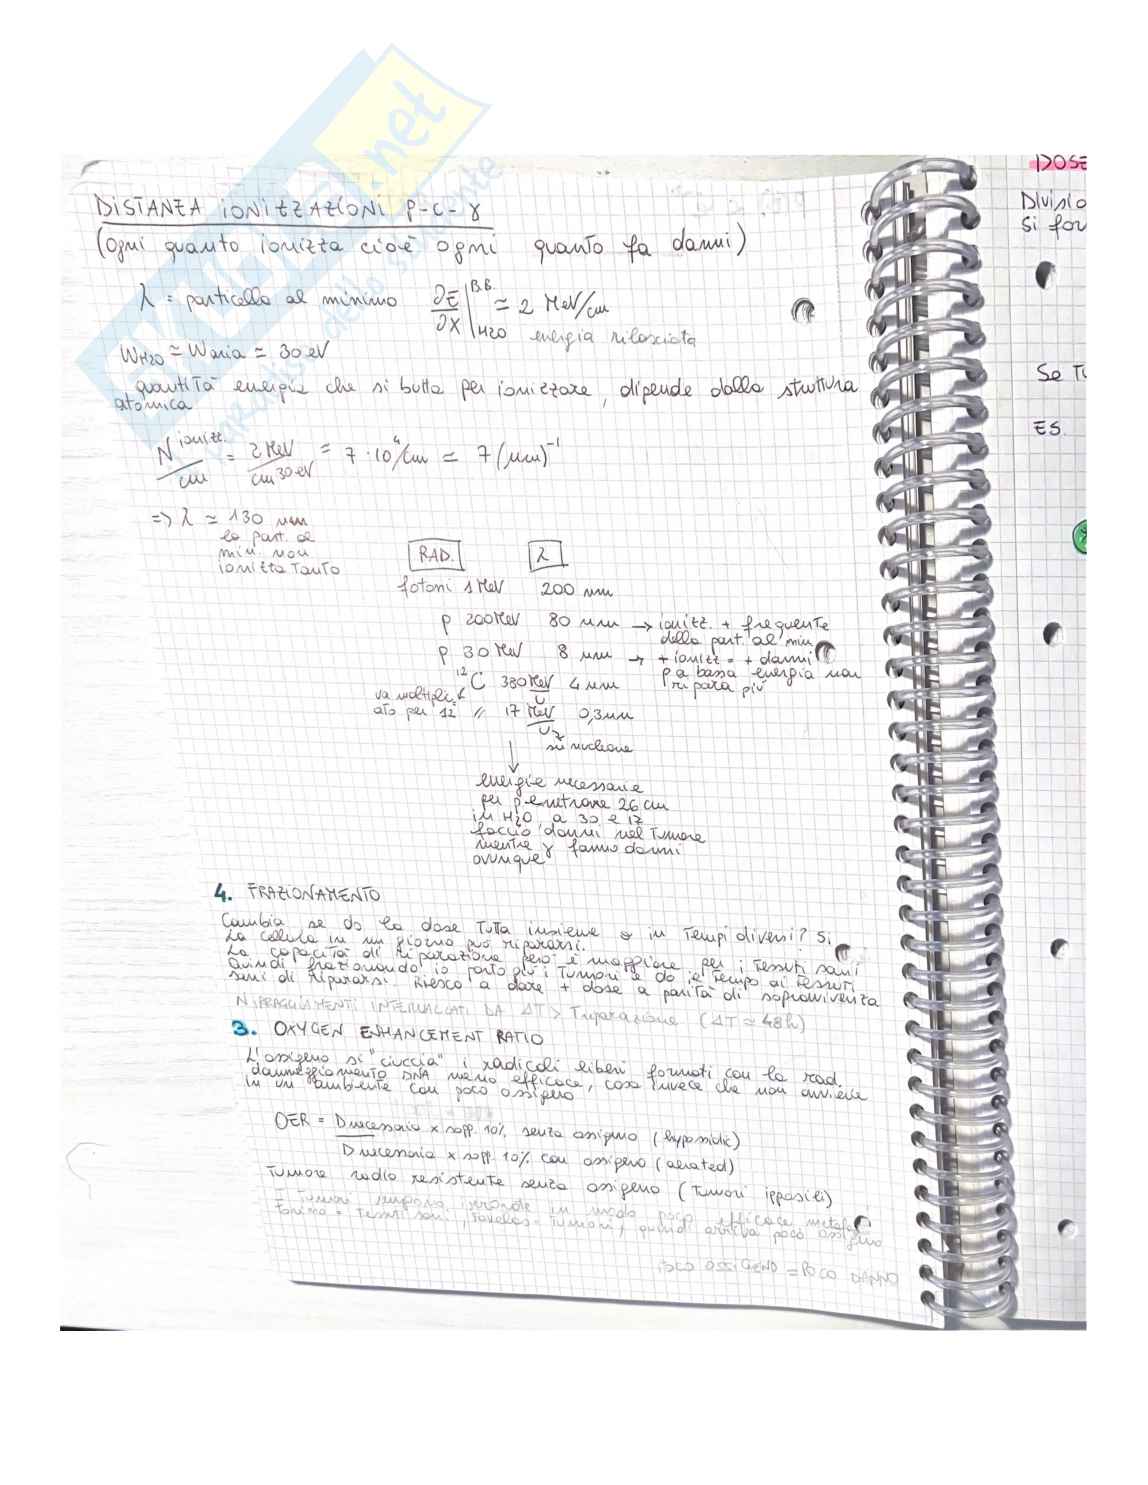 DISTANZA IONIZZAZIONI P-C-γ
(ogni quanto ionizza cioè ogni quanto fa danni)
λ = particella al minimo ∂E/∂x |B.B. H2O ≃ 2 MeV/cm
energia rilasciata
WH2O ≃ Waria ≃ 30 eV
quantità energia che si butta per ionizzare, dipende dalla struttura
atomica
N ionizz./cm = 2 MeV/cm 30 eV ≃ 7·10⁴/cm ≃ 7 (μm)⁻¹
=> λ ≃ 130 nm
la part. al
min. non
ionizza tanto
RAD. λ
fotoni 1 MeV 200 nm
p 200 MeV 80 nm → ionizz. + frequente
della part. al min
p 30 MeV 8 nm → + ionizz = + danni
p a bassa energia non
ripara più
¹²C 380 MeV/u 4 nm
va moltiplic
ato per 12
// 17 MeV/u 0,3 nm
su nucleone
↓
energie necessarie
per penetrare 26 cm
in H2O, a 30 e 17
faccio danni nel tumore
mentre γ fanno danni
ovunque
4. FRAZIONAMENTO
Cambia se do la dose tutta insieme o in tempi diversi? Si
La cellula in un giorno può ripararsi.
La capacità di riparazione però è maggiore per i tessuti sani
quindi frazionando io porto giù i tumori e do il tempo ai tessuti
sani di ripararsi. Riesco a dare + dose a parità di sopravvivenza
N IRRAGGIAMENTI INTERVALLATI DA ΔT > Triparazione (ΔT ≃ 48h)
3. OXYGEN ENHANCEMENT RATIO
L'ossigeno si "ciuccia" i radicali liberi formati con la rad.
danneggiamento DNA meno efficace, cosa invece che non avviene
in un ambiente con poco ossigeno
OER = Dnecessaria x sopp. 10% senza ossigeno (hypoxic)
Dnecessaria x sopp. 10% con ossigeno (aerated)
Tumore radio resistente senza ossigeno (tumori ipossici)
I tumori in modo poco efficace
= tessuti sani, = tumori, quindi arriva poco ossigeno
POCO OSSIGENO = POCO DANNO
DOSE
Divisio
si for
Se Tu
ES.
.net